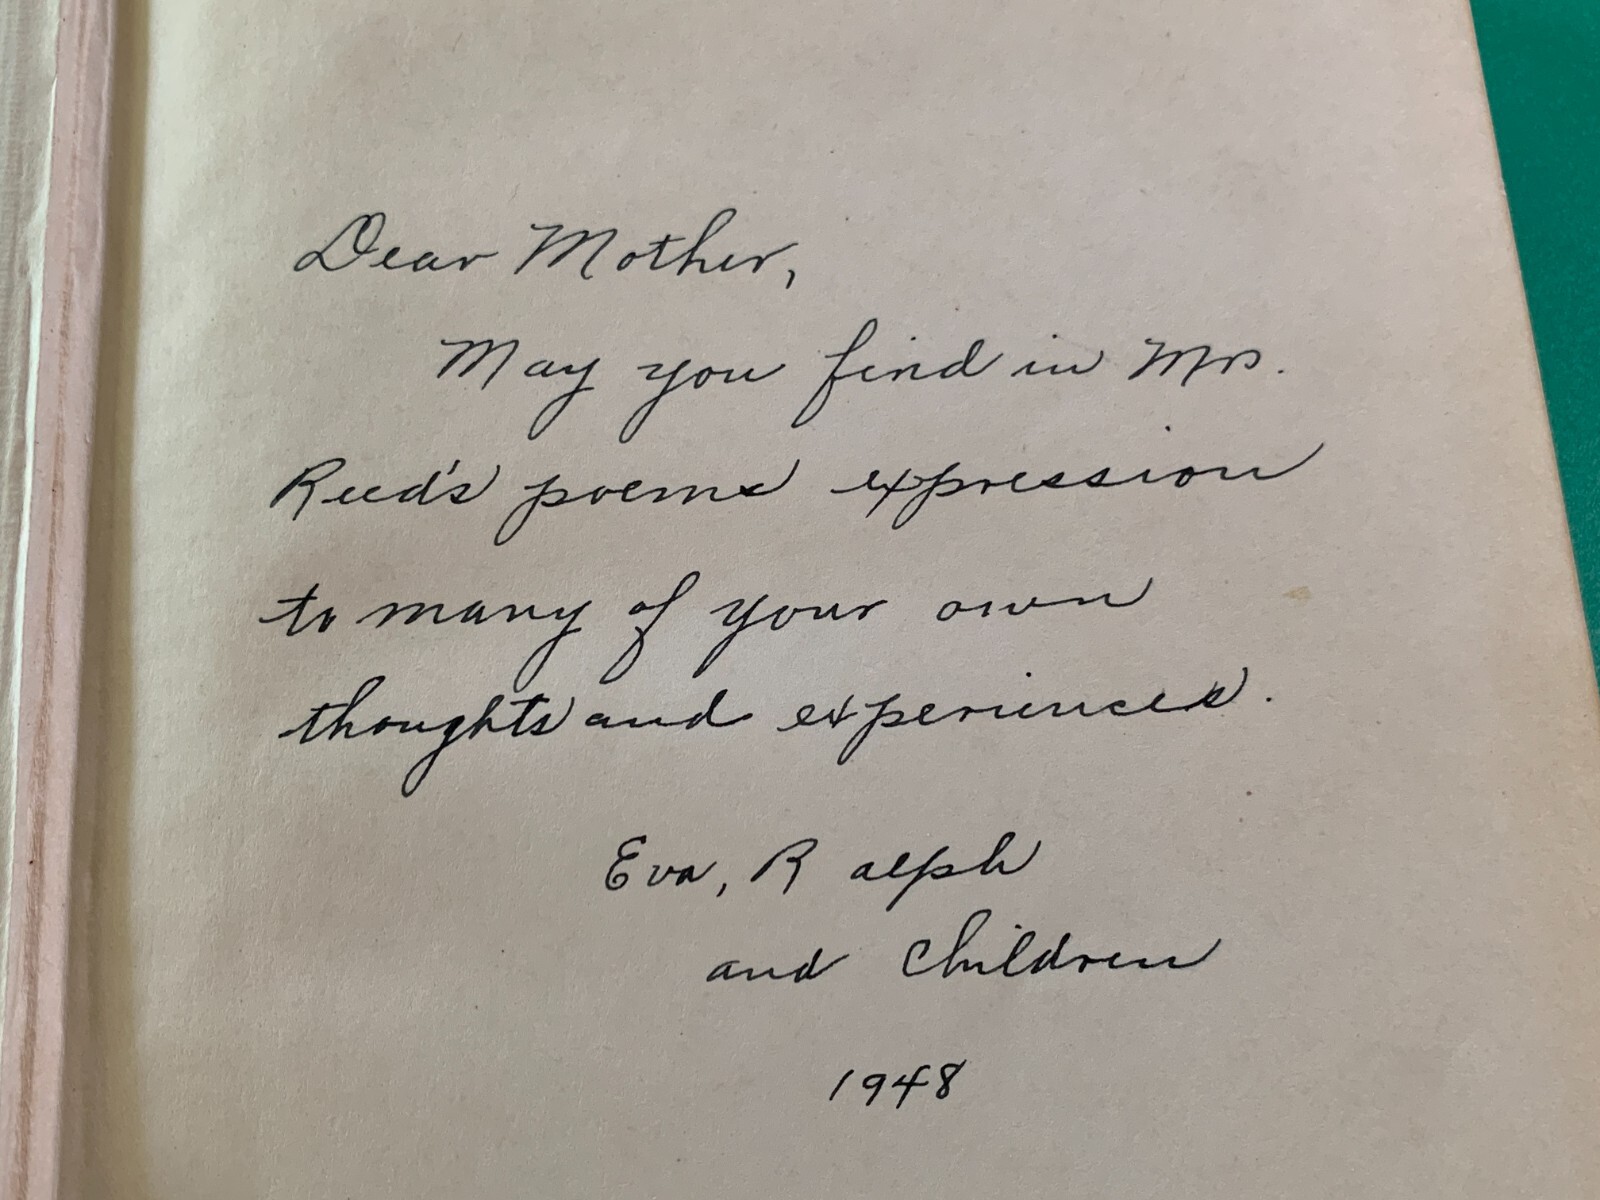 Dear Mother,
May you find in Mrs.
Reed's poems expression
to many of your own
thoughts and experiences.
Eva, Ralph
and Children
1948